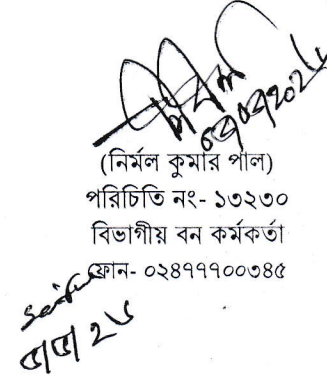 ০৭/০৭/২০২৬
(নির্মল কুমার পাল)
পরিচিতি নং- ১৩২৩০
বিভাগীয় বন কর্মকর্তা
ফোন- ০২৪৭৭৭০০৩৪৫